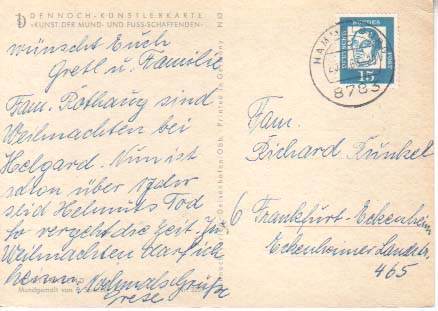 DENNOCH-KÜNSTLERKARTE
"KUNST DER MUND- UND FUSS-SCHAFFENDEN"
wünscht Euch
Gretl u. Familie
Fam. Rothaug sind
Weihnachten bei
Helgard. Nun ist
schon über
seid Helmuts Tod
so vergeht die Zeit. Zu
Weihnachten darf ich
heim. Nochmals Grüße
Mundgemalt von
Deisenhofen Obb. Printed in Germany
DEUTSCHE BUNDESPOST
15
8783
Fam.
Richard Kunkel
6 Frankfurt-Eckenheim
Eckenheimer Landstr.
465